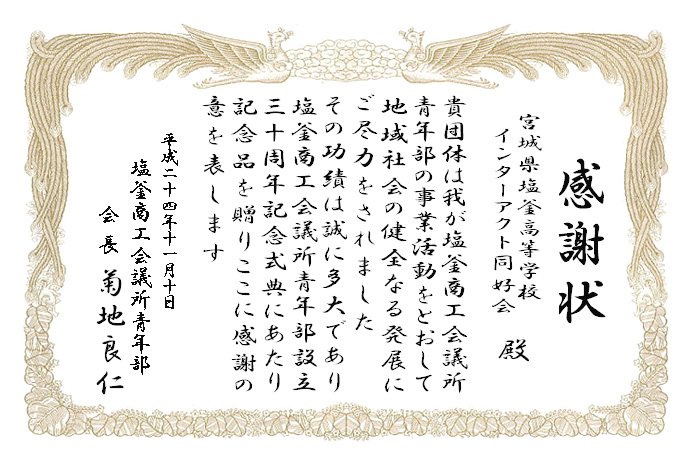 感謝状
宮城県塩釜高等学校
インターアクト同好会
殿
貴団体は我が塩釜商工会議所
青年部の事業活動をとおして
地域社会の健全なる発展に
ご尽力をされました
その功績は誠に多大であり
塩釜商工会議所青年部設立
三十周年記念式典にあたり
記念品を贈りここに感謝の
意を表します
平成二十四年十一月十日
塩釜商工会議所青年部
会長 菊地良仁